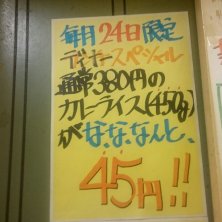 毎月24日限定
ディナースペシャル
通常380円の
カレーライス(450g)
がな、な、なんと、
45円!!